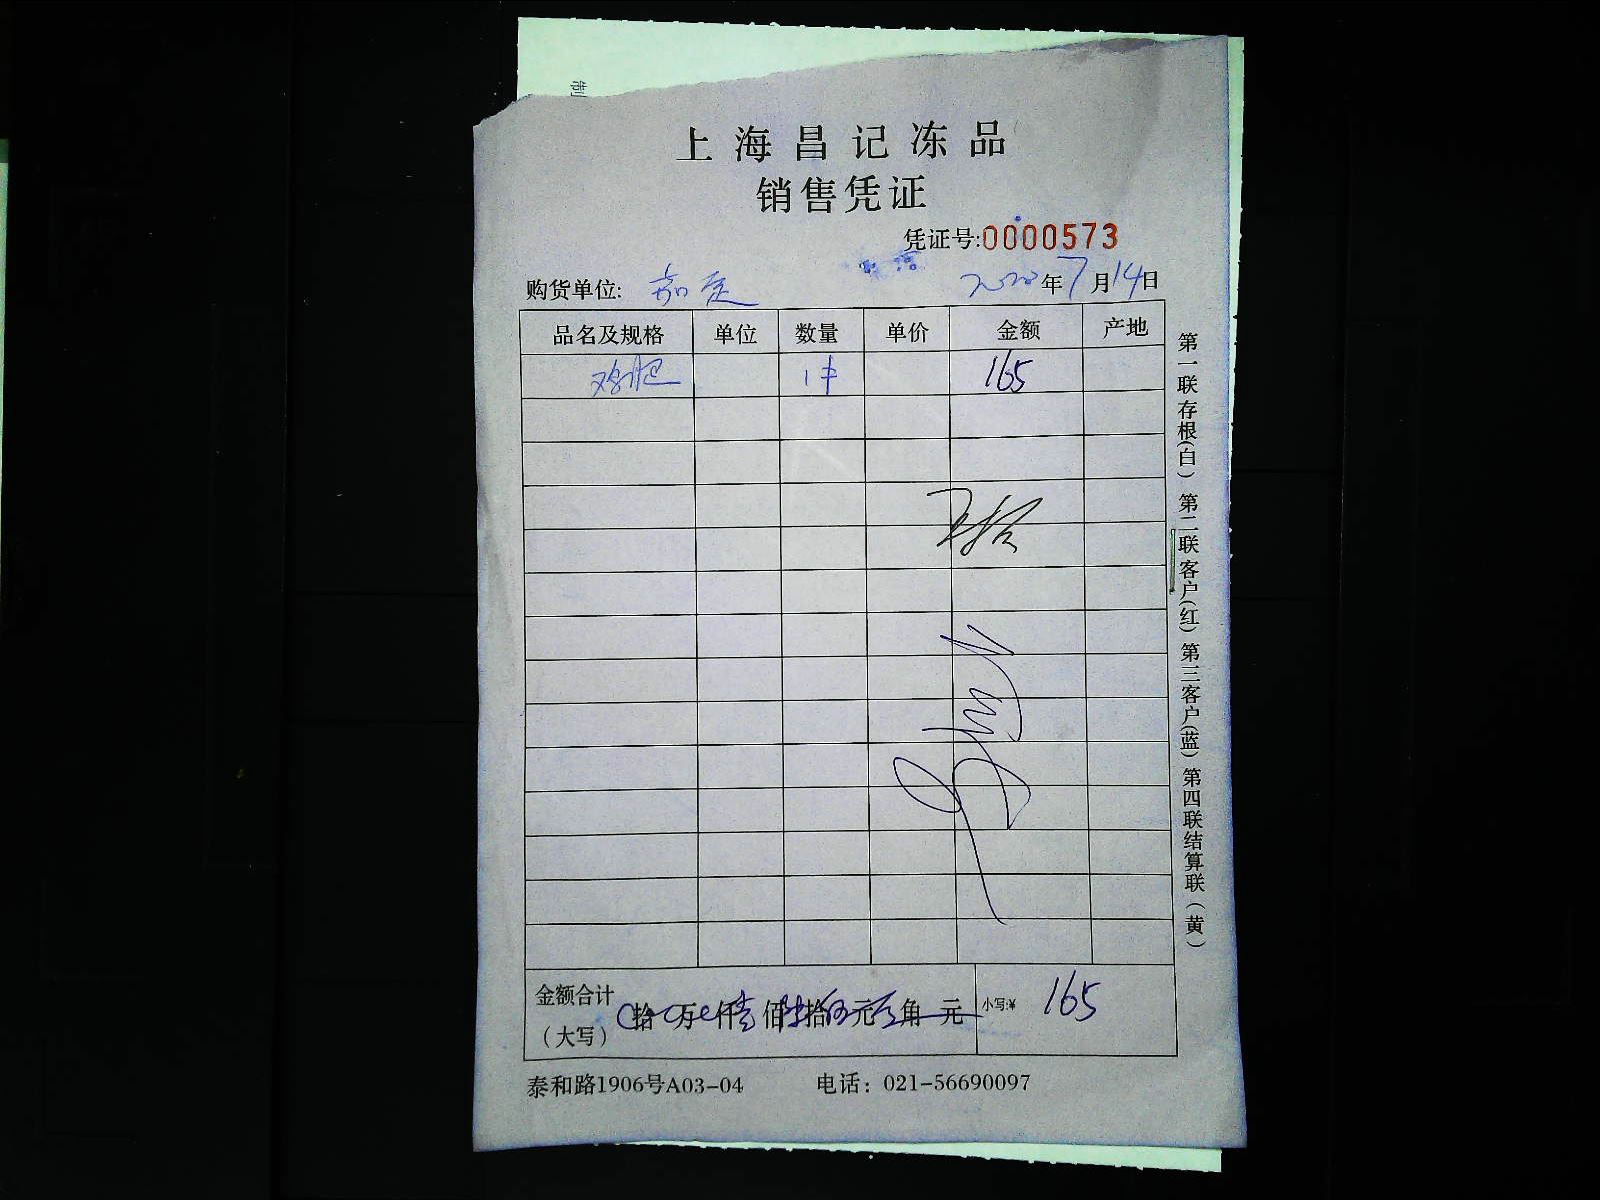 制
上海昌记冻品
销售凭证
凭证号:0000573
购货单位: 嘉定 2020年7月14日
品名及规格 单位 数量 单价 金额 产地
鸡腿 1件 165
金额合计 拾 万 仟壹佰陆拾伍元 角 元 小写:¥ 165
(大写)
泰和路1906号A03-04 电话：021-56690097
第一联存根(白) 第二联客户(红) 第三客户(蓝) 第四联结算联(黄)